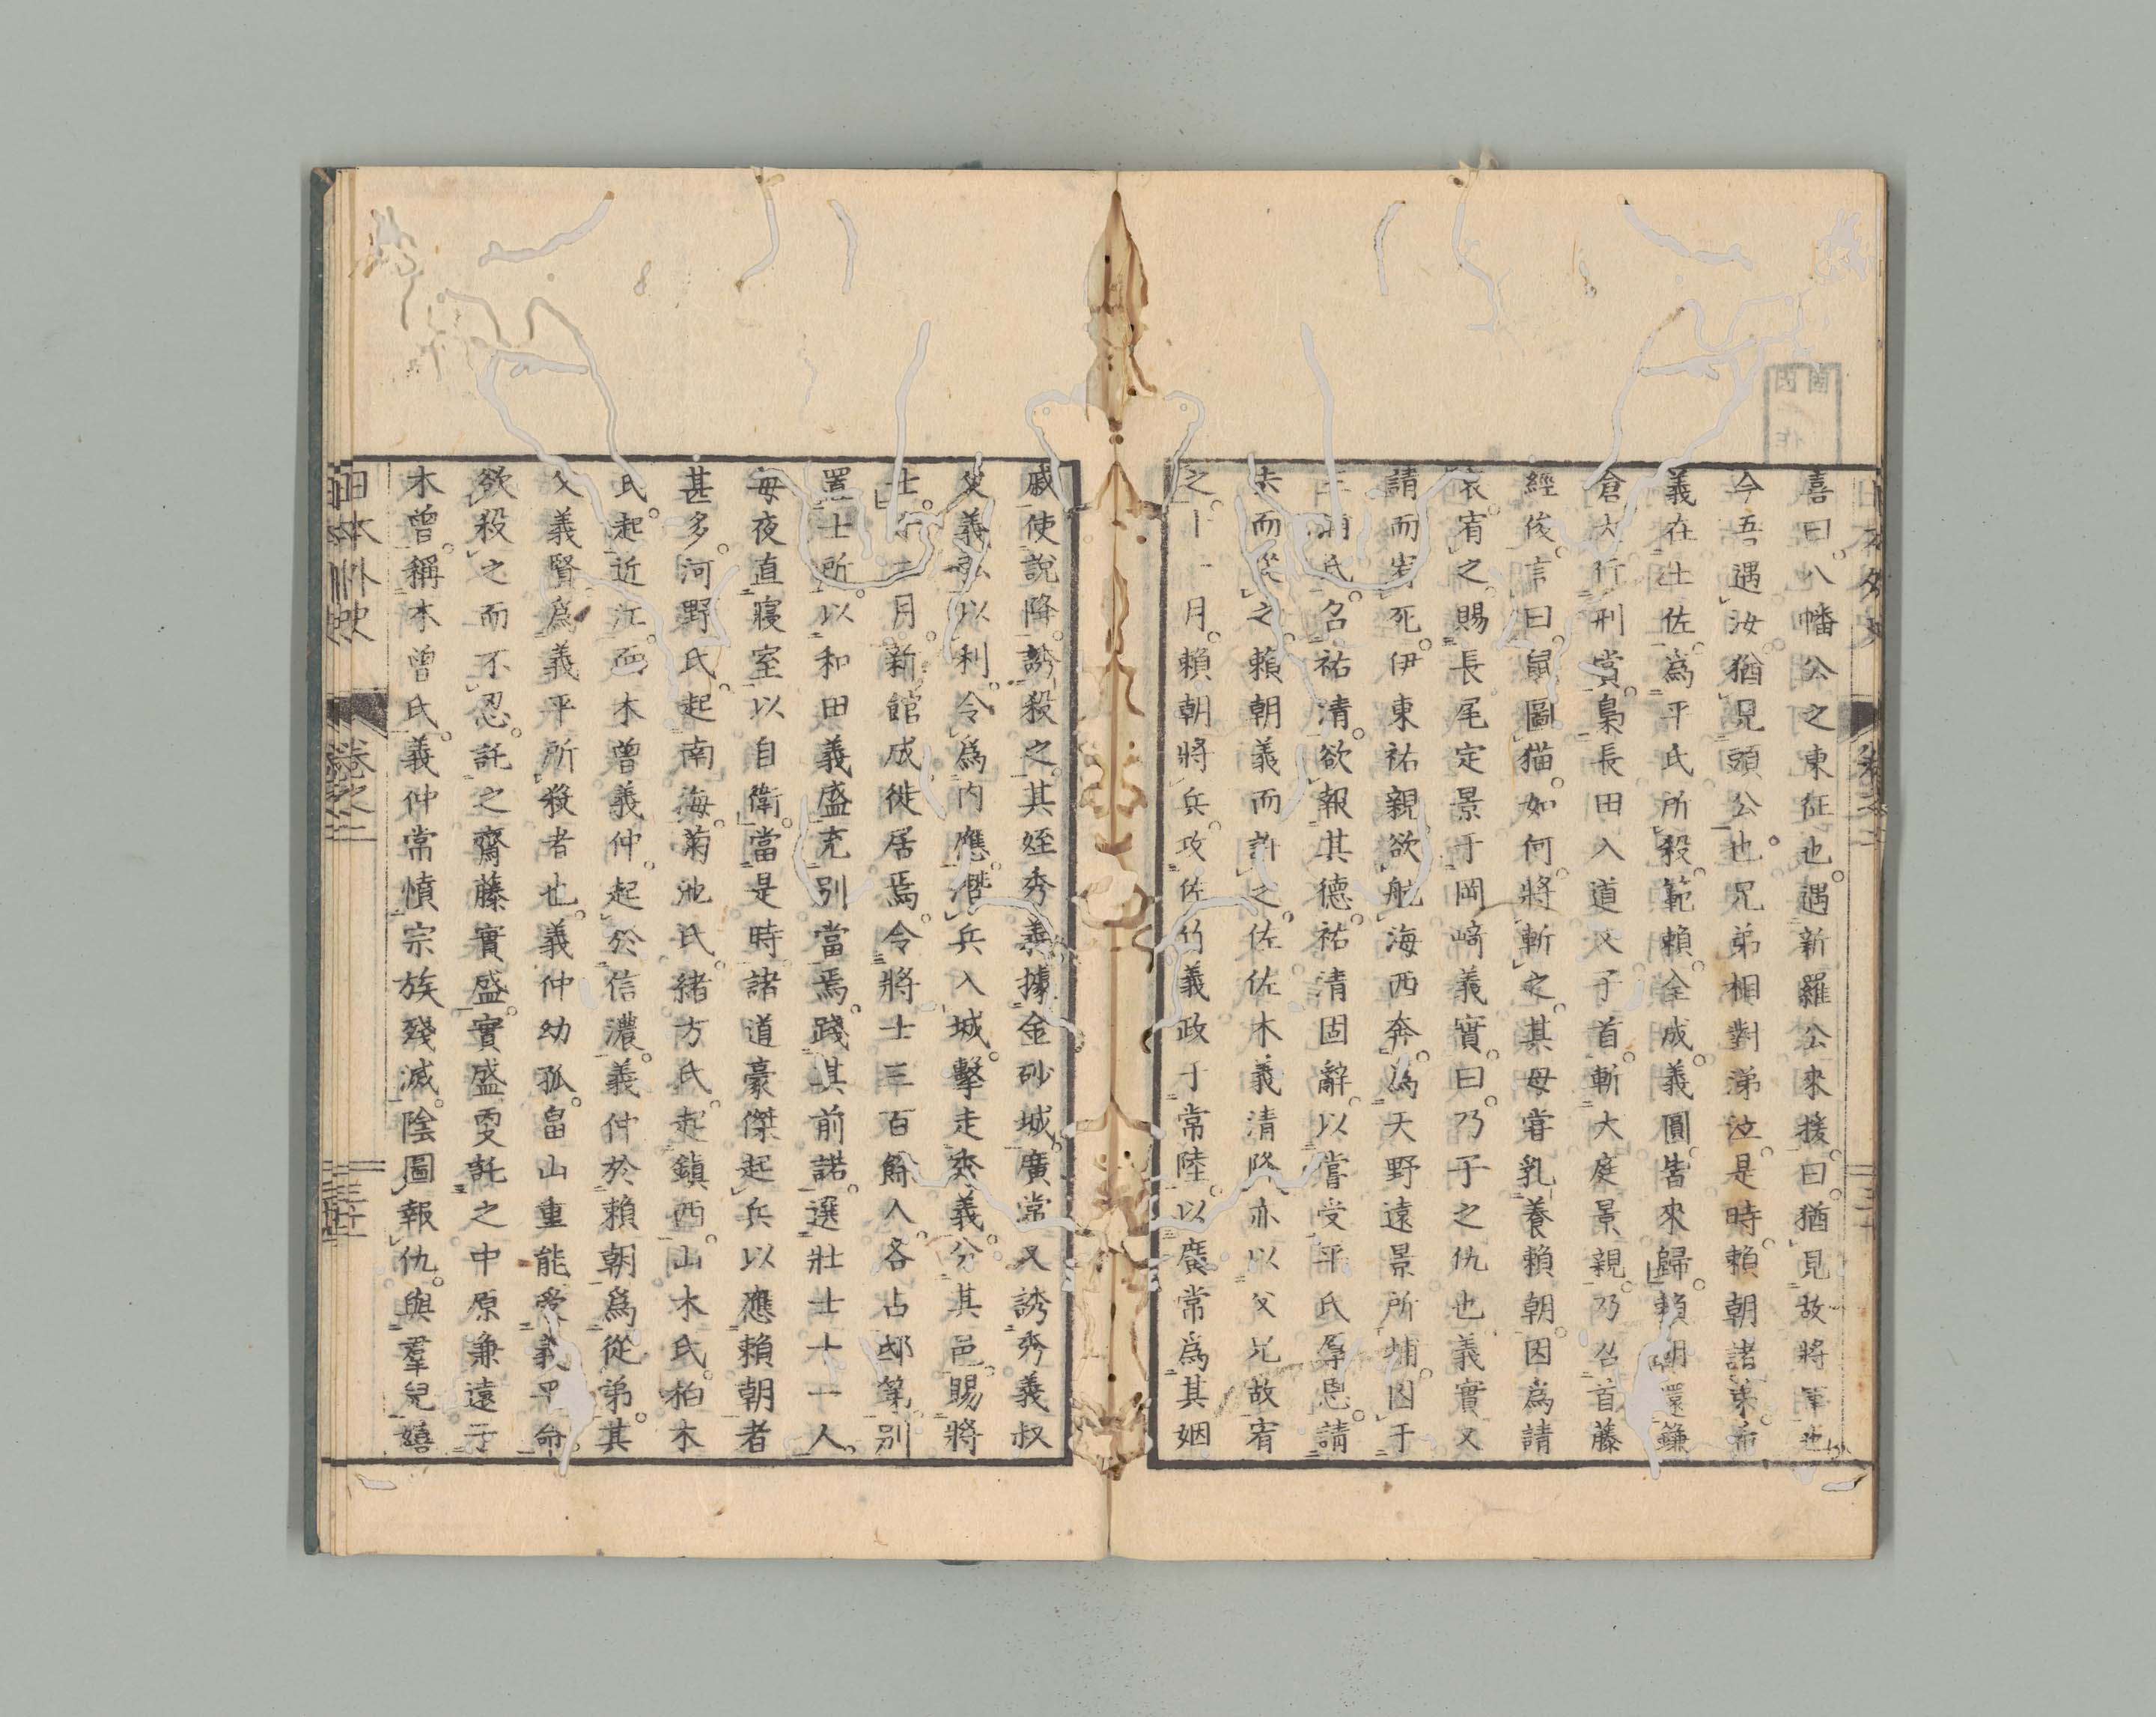 喜曰。八幡公之東征也。遇新羅公來援。曰。猶見故將軍也
今吾遇汝。猶見頭公也。兄弟相對涕泣。是時。賴朝諸弟。希
義在土佐。爲平氏所殺。範賴。全成。義圓。皆來歸。賴朝還鎌
倉大行刑賞。梟長田入道父子首。斬大庭景親。乃召首藤
經俊。言曰。鼠圖猫。如何。將斬之。其母嘗乳養賴朝。因爲請
哀宥之。賜長尾定景于岡﨑義實。曰。乃子之仇也義實又
請而宥死。伊東祐親欲航海西奔。爲天野遠景所捕。囚于
三浦氏。召祐淸。欲報其德。祐淸固辭。以嘗受平氏厚恩。請
去而從之。賴朝義而許之。佐佐木義淸降。亦以父兄故宥
之。十一月。賴朝將兵。攻佐竹義政于常陸。以廣常爲其姻
戚使說降。誘殺之。其姪秀義據金砂城。廣常又誘秀義叔
父義弘以利。令爲内應。潛兵入城。擊走秀義。分其邑。賜將
士。十二月。新館成。徙居焉。令將士三百餘人。各占邸第。別
置士所。以和田義盛充別當焉。踐其前諾。選壯士十一人。
每夜直寢室以自衛。當是時諸道豪傑起兵以應賴朝者
甚多。河野氏。起南海。菊池氏。緒方氏。起鎭西。山木氏。柏木
氏。起近江。而木曾義仲。起於信濃。義仲於賴朝爲從弟。其
父義賢爲義平所殺者也。義仲幼孤。畠山重能受義平命。
欲殺之而不忍。託之齋藤實盛。實盛更託之中原兼遠于
木曾。稱木曾氏。義仲常憤宗族殘滅。陰圖報仇。與羣兒嬉
日本外史 卷之二